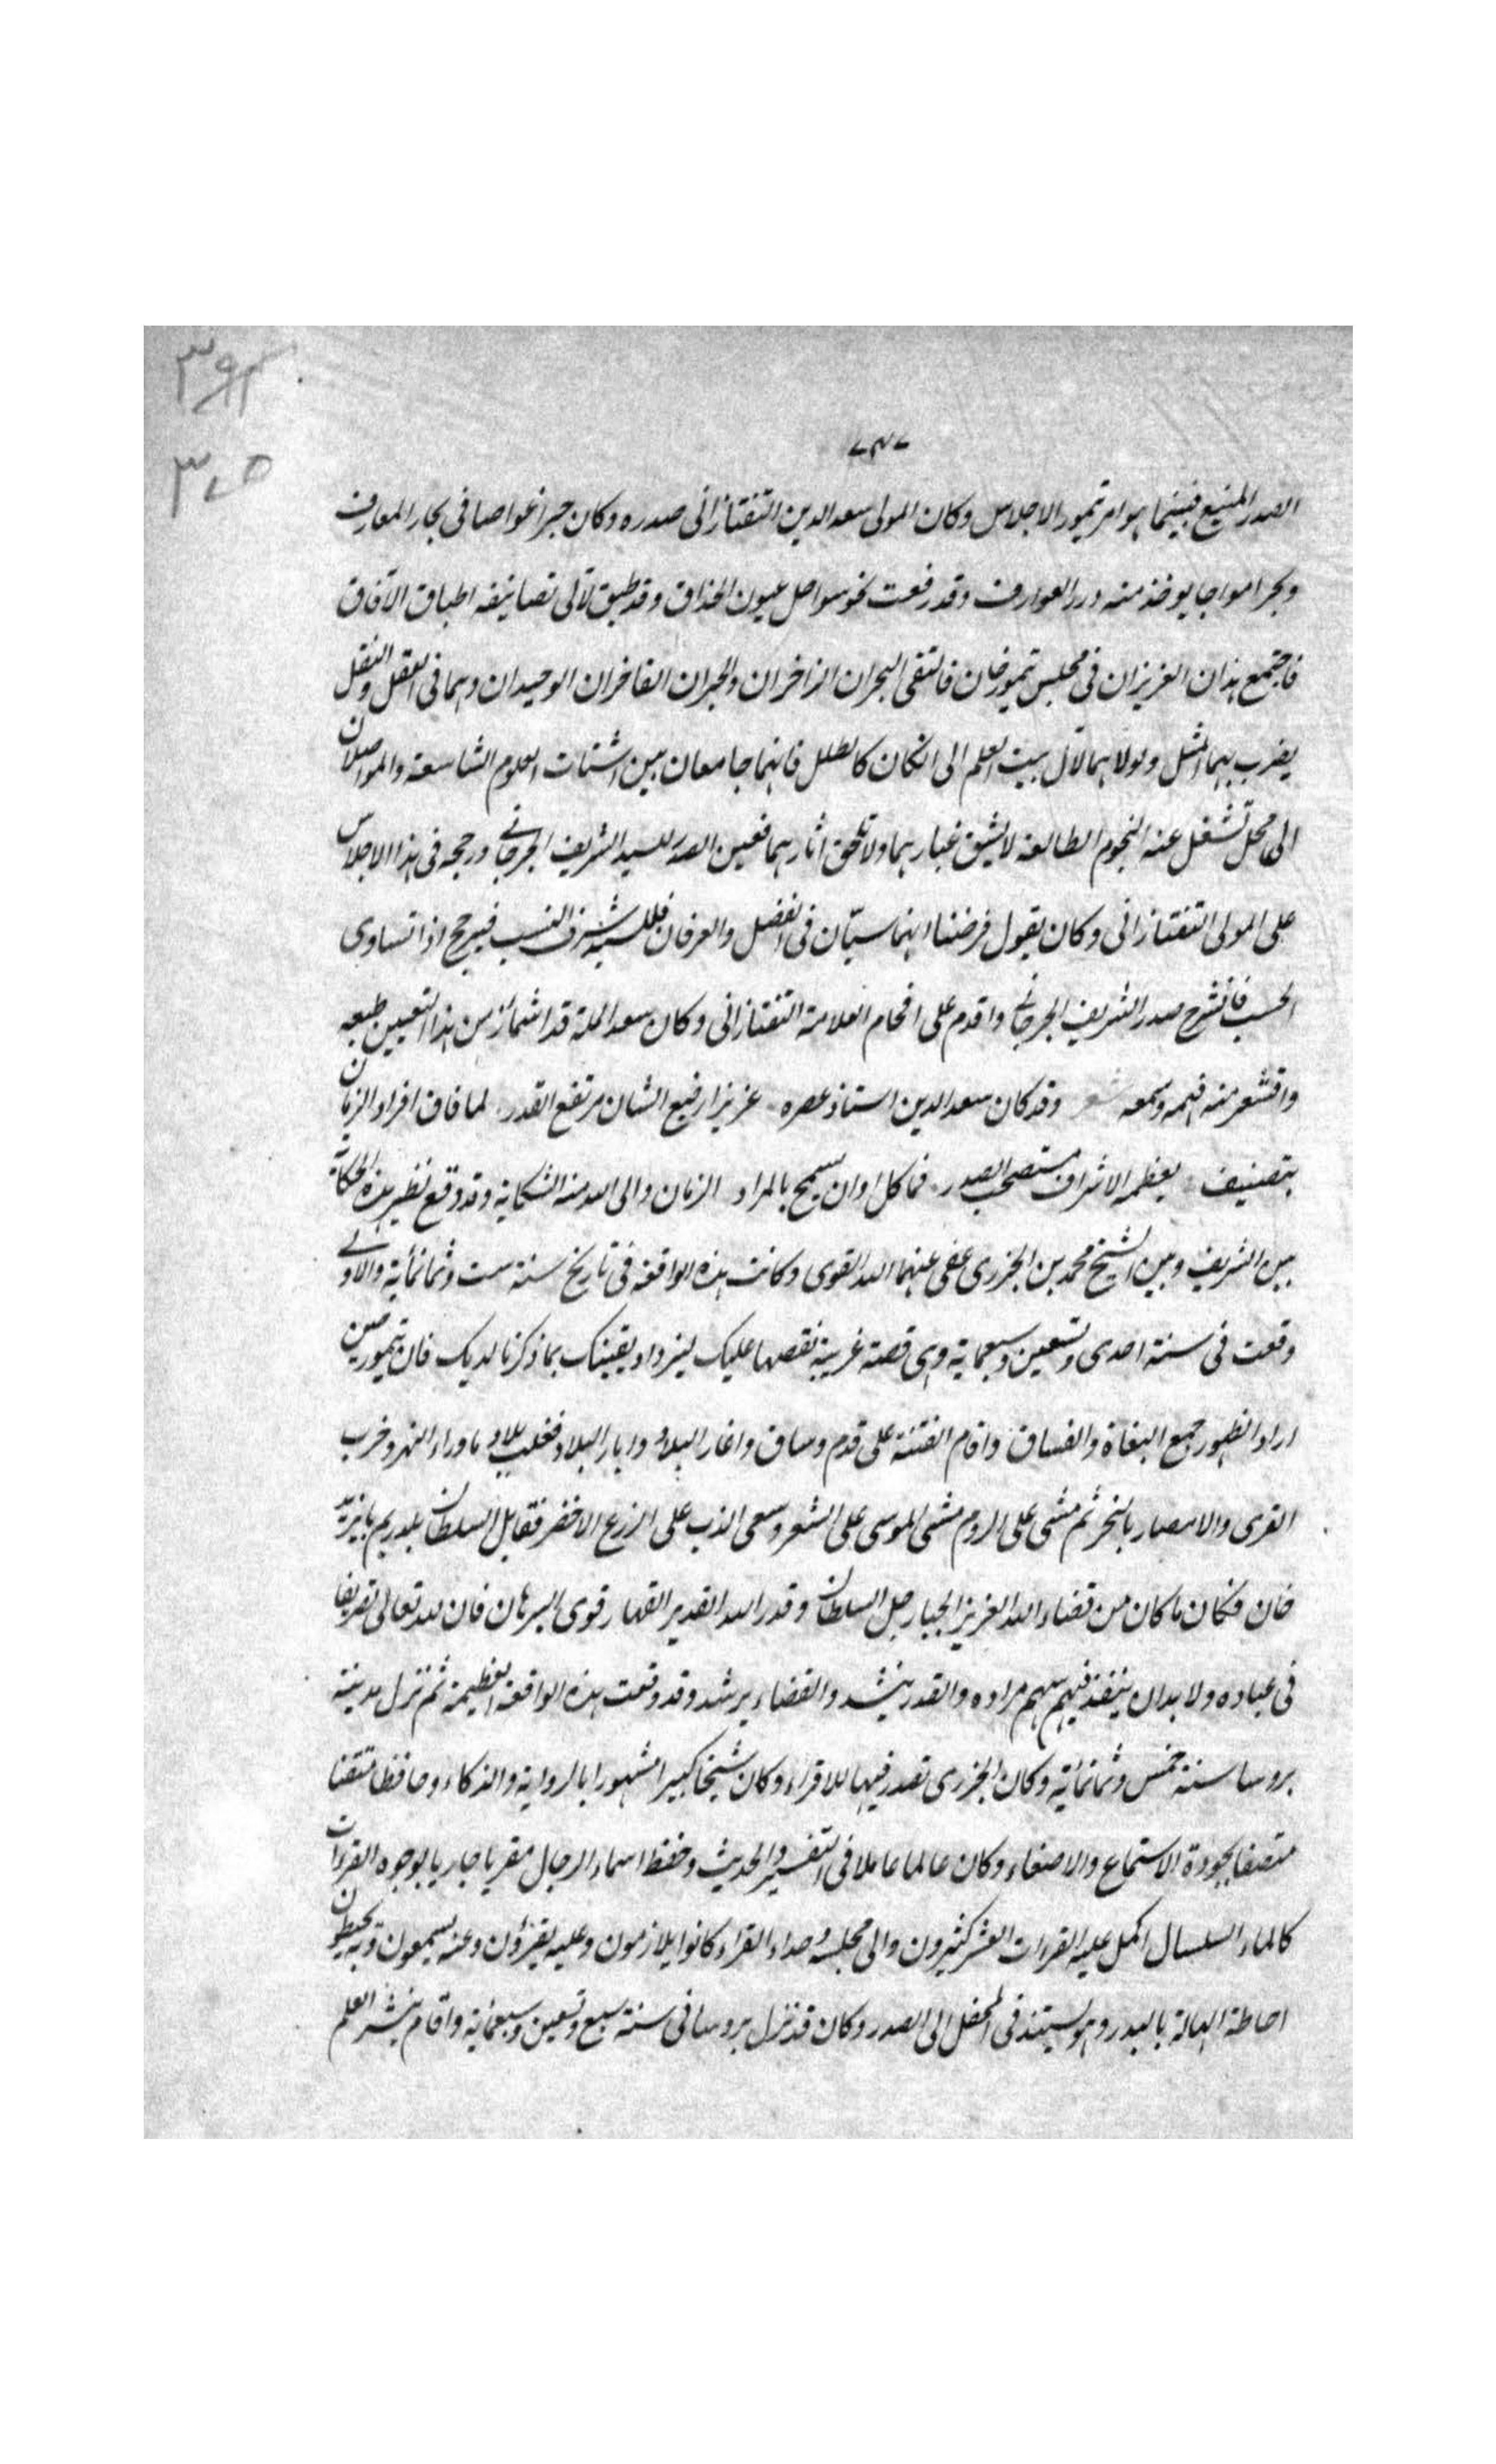 ٣٩٢
٣٧٥
٧٣٧
الصدر المنيع فبينما هو امر تيمور الاجلاس وكان المولى سعد الدين التفتازانى صدره وكان حبرا غواصا فى بحار المعارف
وبحرا مواجا يوخذ منه درر العوارف وقد رفعت نحو سواحل عيون الحذاق وقد طبق لآلى تصانيفه اطباق الآفاق
فاجتمع هذان العزيزان فى مجلس تيمور خان فالتقى البحران الزاخران والحبران الفاخران الوحيدان وهما فى العقل والنقل
يضرب بهما المثل ولولاهما لآل بيت العلم الى الكان كالطلل فانهما جامعان بين اشتات العلوم الشاسعة والمواصلان
الى محل تشغل عنه النجوم الطالعة لا يشق غبارهما ولا تلحق اثارهما فعين الصدر للسيد الشريف الجرجانى ورجحه فى هذا الاجلاس
على المولى التفتازانى وكان يقول فرضنا انهما سيّان فى الفضل والعرفان فللسيد شرف النسب فيرجح اذا تساوى
الحسب فانشرح صدر الشريف الجرجانى واقدم على افحام العلامة التفتازانى وكان سعد الملة قد اشمأز من هذا التعيين طبعه
واقشعر منه فهمه وسمعه شعر وقد كان سعد الدين استاذ عصره عزيزا رفيع الشان مرتفع القدر لما فاق افراد الزمان
بتصنيف يعظمه الاشراف مستصحب الصدر فما كل اوان يسمح بالمراد الزمان والى الله منه الشكاية وقد وقع نظير هذه الحكاية
بين الشريف وبين الشيخ محمد بن الجزرى عفى عنهما الله القوى وكانت هذه الواقعة فى تاريخ سنة ست وثمانمائة والاولى
وقعت فى سنة احدى وتسعين وسبعماية وهى قصة غريبة نقصها عليك ليزداد يقينك بما ذكرنا لديك فان تيمور حين
اراد الظهور جمع البغاة والفساق واقام الفتنة على قدم وساق واغار البلاد وابار البلاد فغلب بلاد ماوراء النهر وخرب
القرى والامصار بالنخر ثم مشى على الروم مشى الموسى على الشعر وسعى الدب على الزرع الاخضر فقابل السلطان يلديرم بايزيد
خان فكان ما كان من قضاء الله العزيز الجبار جل السلطان وقدر الله القدير القهار قوى البرهان فان لله تعالى تصريفا
فى عباده ولا بد ان ينفذ فيهم سهم مراده والقدر ينشد والقضاء يرشد وقد وقعت هذه الواقعة العظيمة ثم نزل مدينة
بروسا سنة خمس وثمانمائة وكان الجزرى تصدر فيها للاقراء وكان شيخا كبيرا مشهورا بالرواية والذكاء وحافظا متقنا
متصفا بجودة الاستماع والاصغاء وكان عالما عاملا فى التفسير والحديث وحفظ اسماء الرجال مقريا جاريا بوجوه القرءات
كالماء السلسال اكمل عليه القرءات العشر كثيرون والى مجلسه وحداء القراء كانوا يلازمون وعليه يقرؤن وعنه يسمعون وبه يحيطون
احاطة الهالة بالبدر وهو يستند فى المحفل الى الصدر وكان قد نزل بروسا فى سنة سبع وتسعين وسبعمائة واقام ينشر العلم